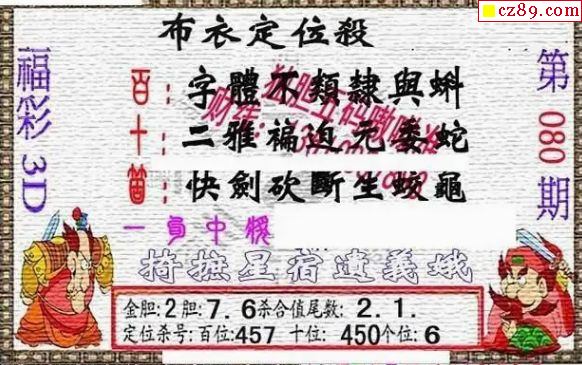 cz89.com
布衣定位殺
福彩3D
第080期
百：字體不類隸與蝌
十：二雅褊迫无委蛇
個：快劍砍斷生蛟鼉
一 負中
掎摭星宿遺義娥
金胆:2胆:7.6杀合值尾数：2.1.
定位杀号:百位:457 十位：450个位:6